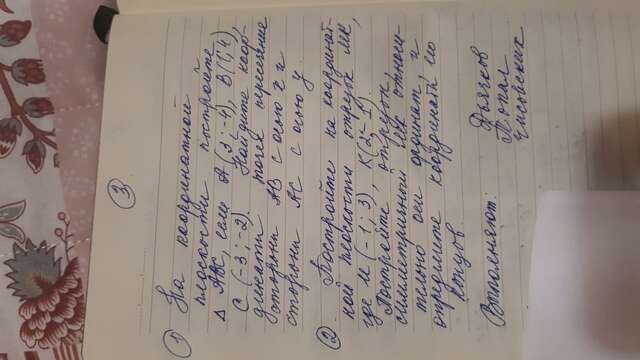 3
1) На координатной
плоскости постройте
Δ ABC, если A (3; -4), B (1; 4)
C (-3; -2). Найдите коор-
динаты точек пересечения
стороны AB с осью x и
стороны AC с осью y.
2) Постройте на координат-
ной плоскости отрезок MK,
где M (-1; 3), K (2; -1).
Постройте отрезок
симметричный MK относи-
тельно оси ординат и
определите координаты его
концов
Выполняют: Дьячков
Попал
Чисовских